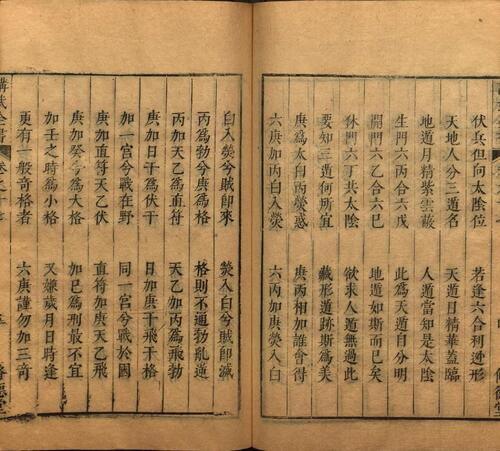 伏兵但向太陰位　若逢六合利逃形
天地人分三遁名　天遁月精華蓋臨
地遁月精紫雲蔽　人遁當知是太陰
生門六丙合六戊　此爲天遁自分明
開門六乙合六己　地遁如斯而已矣
休門六丁共太陰　欲求人遁無過此
要知三遁何所宜　藏形遁跡斯爲美
庚爲太白丙熒惑　庚丙相加誰會得
六庚加丙白入熒　六丙加庚熒入白
白入熒兮賊即來　熒入白兮賊即滅
丙爲勃兮庚爲格　格則不通勃亂逆
丙加天乙爲直符　天乙加丙爲飛勃
庚加日干爲伏干　日加庚干飛干格
加一宮兮戰在野　同一宮兮戰於國
庚加直符天乙伏　直符加庚天乙飛
庚加癸兮爲大格　加己爲刑最不宜
加壬之時爲小格　又嫌歲月日時逢
更有一般奇格者　六庚謹勿加三奇
講武全書　卷之十七
五